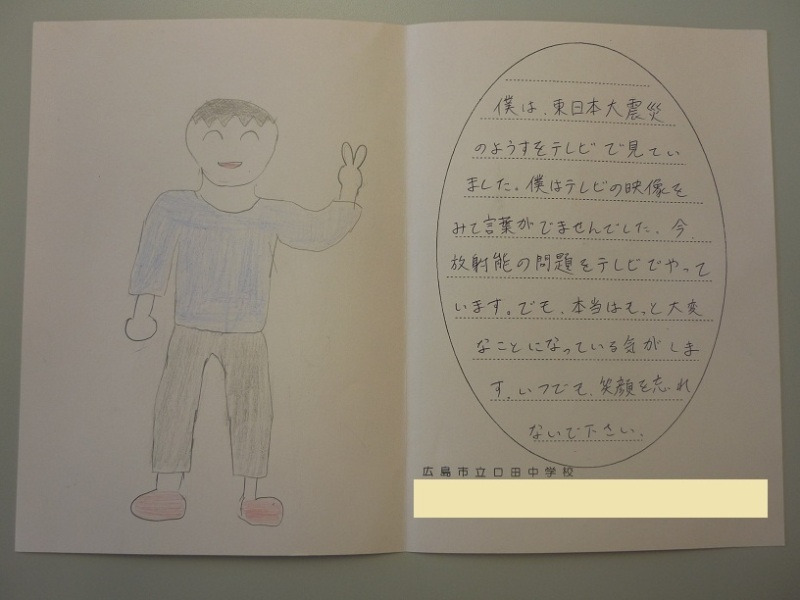 僕は、東日本大震災
のようすをテレビで見てい
ました。僕はテレビの映像を
みて言葉がでませんでした。今、
放射能の問題をテレビでやって
います。でも、本当はもっと大変
なことになっている気がしま
す。いつでも、笑顔を忘れ
ないで下さい。
広島市立口田中学校